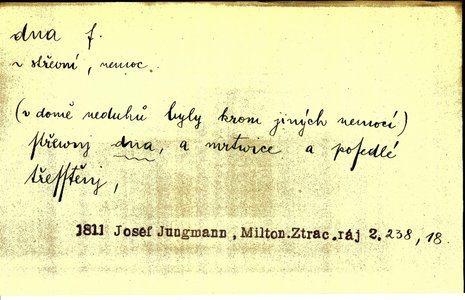 dna f.
~ střevní, nemoc.
(v domě neduhů byly krom jiných nemocí)
střewnj dna, a mrtwice a posedlé
třesstěnj,
1811 Josef Jungmann, Milton.Ztrac.ráj 2. 238, 18.